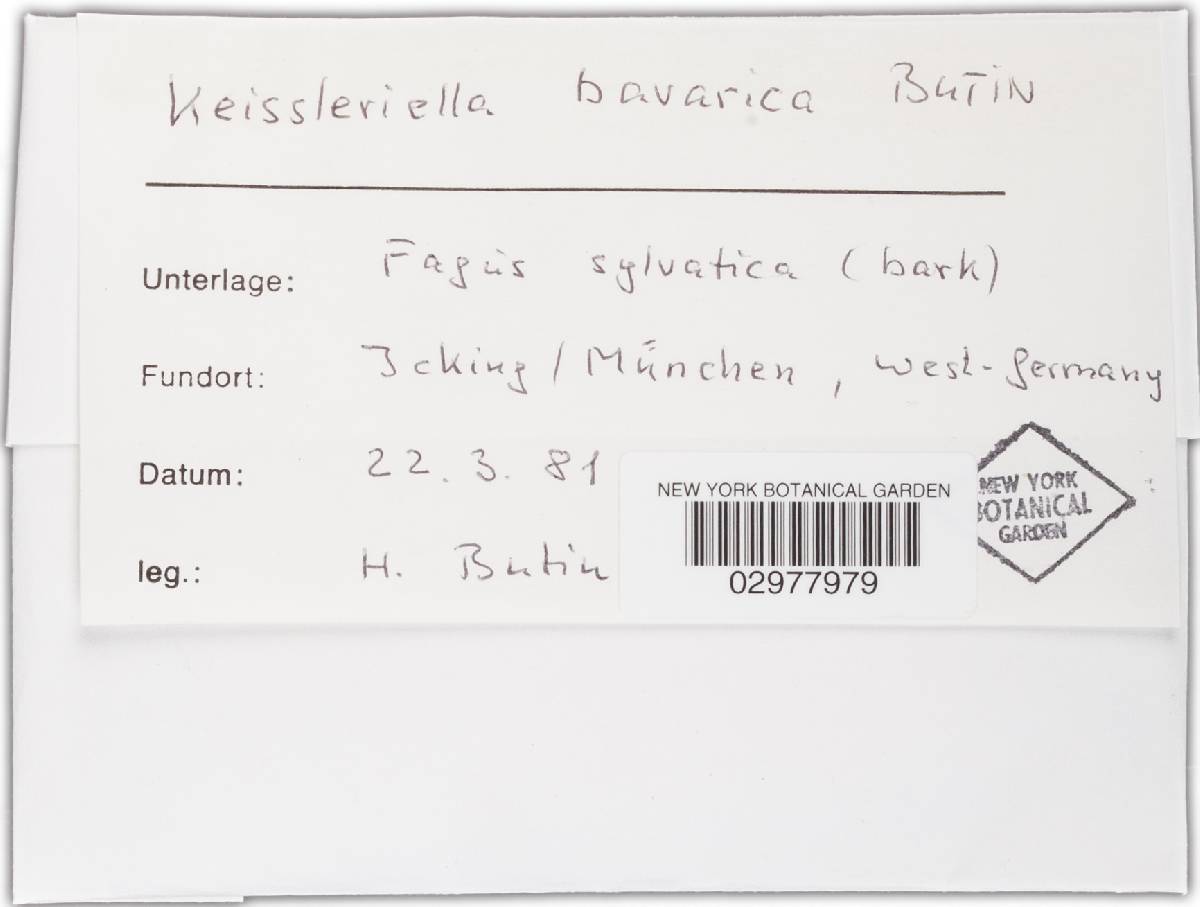 Keissleriella bavarica BUTIN
Unterlage: Fagus sylvatica (bark)
Fundort: Icking / München, West-Germany
Datum: 22. 3. 81
leg.: H. Butin
NEW YORK BOTANICAL GARDEN
02977979
NEW YORK
BOTANICAL
GARDEN